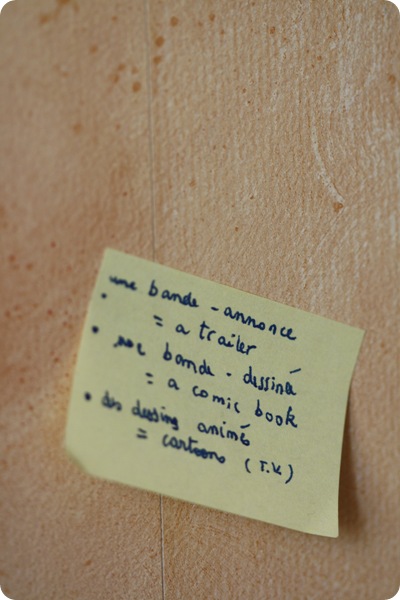 • une bande-annonce
= a trailer
• une bande-dessiné
= a comic book
• des dessins animé
= cartoons (T.V)